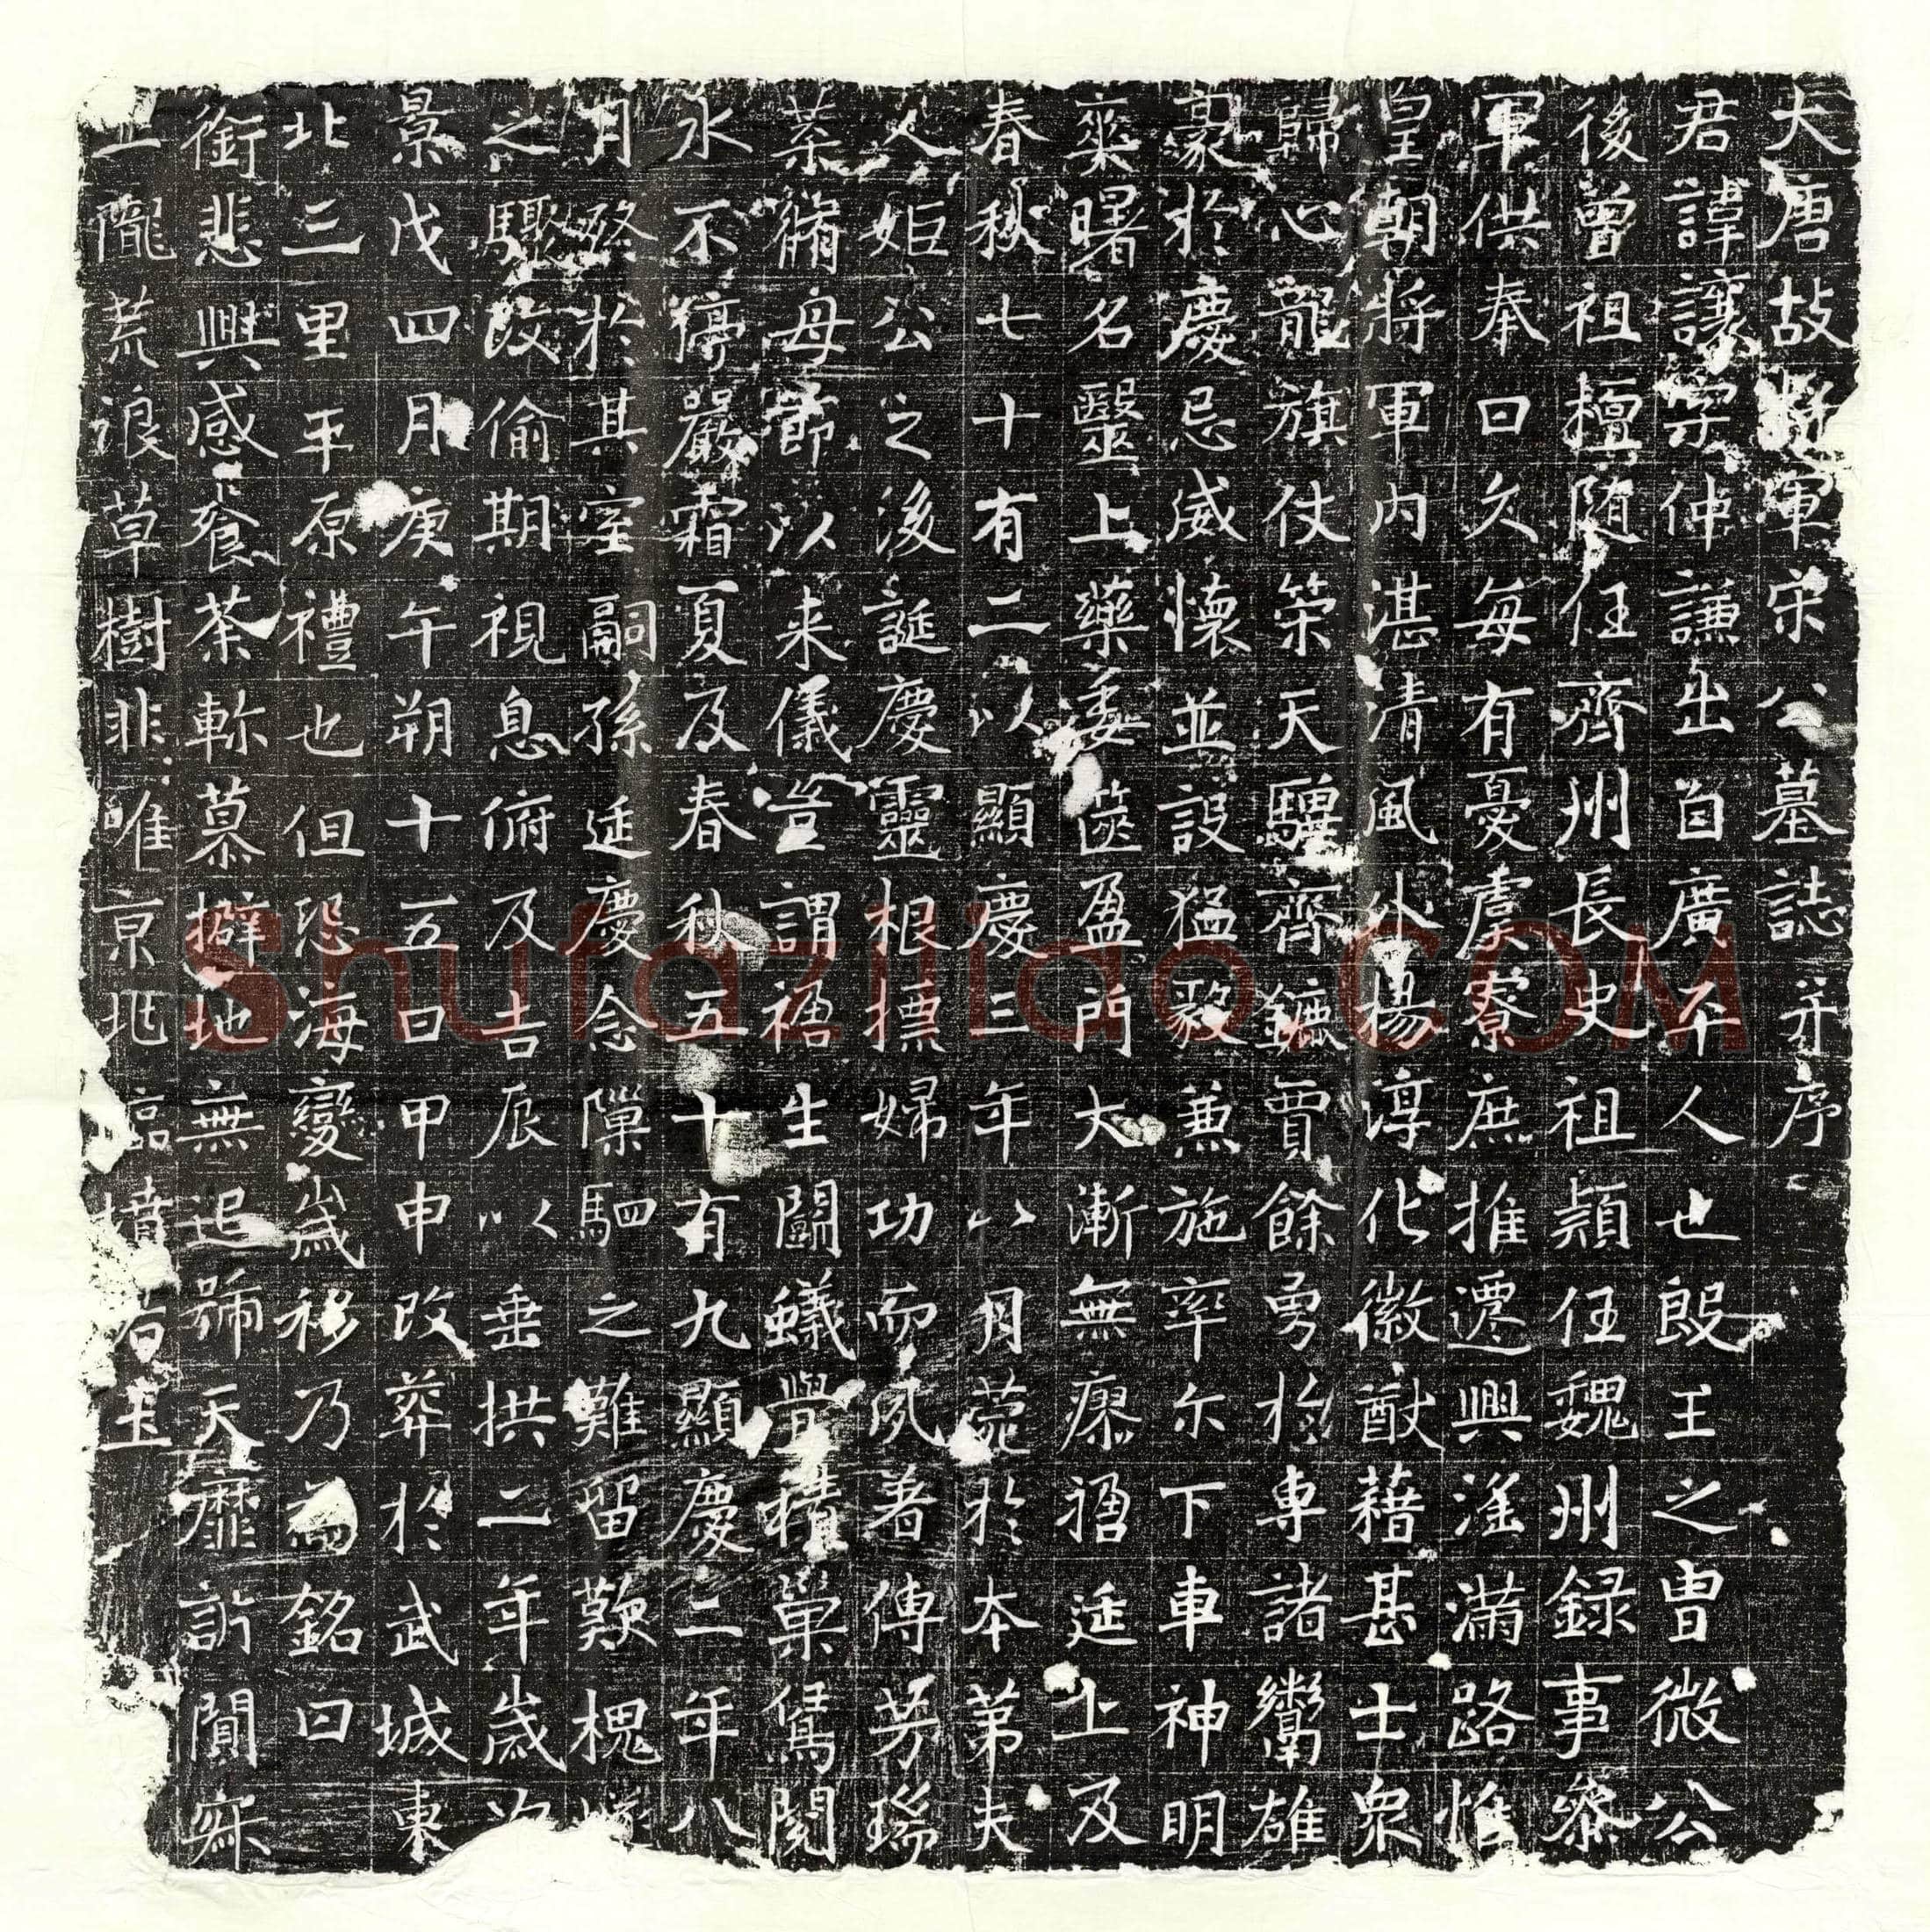 大唐故將軍宋公墓誌并序
君諱讓字仲謙出自廣平人也殷王之曺微公
後曾祖檀随任齊州長史祖穎任魏州録事叅
軍供奉日久每有憂虞寮庶推遷興滛滿路惟
皇朝將軍内湛清風外揚淳化徽猷藉甚士衆
歸心龍旗仗榮天驥齊鑣賈餘勇於專諸鬻雄
豪於慶忌威懷並設猛毅兼施率尓下車神明
奭曙名毉上藥委箧盈門大漸無瘳禍延上及
春秋七十有二以顯慶三年八月薨於本第夫
人姫公之後誕慶靈根摽婦功而夙著傳芳瑞
荼脩母節以来儀豈謂禍生鬭蟻舋積巢鳶閱
水不停嚴霜夏及春秋五十有九顯慶二年八
月終於其室嗣孫延慶念隟駟之難留歎槐
之驟改偷期視息俯及吉辰以垂拱二年歲次
景戌四月庚午朔十五日甲申改葬於武城東
北三里平原禮也但恐海變嵗移乃為銘曰
銜悲興感飡荼軫慕擗地無追號天靡訴闃寐
隴荒浪草樹非唯京兆墳右玉
Shufaziliao.COM